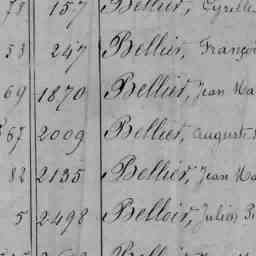 73 157 Bellier, Cyrille
53 247 Bellier, Franço
69 1870 Bellier, Jean Ma
67 2009 Bellier, August
82 2135 Bellier, Jean Ma
5 2498 Belloir, Julien